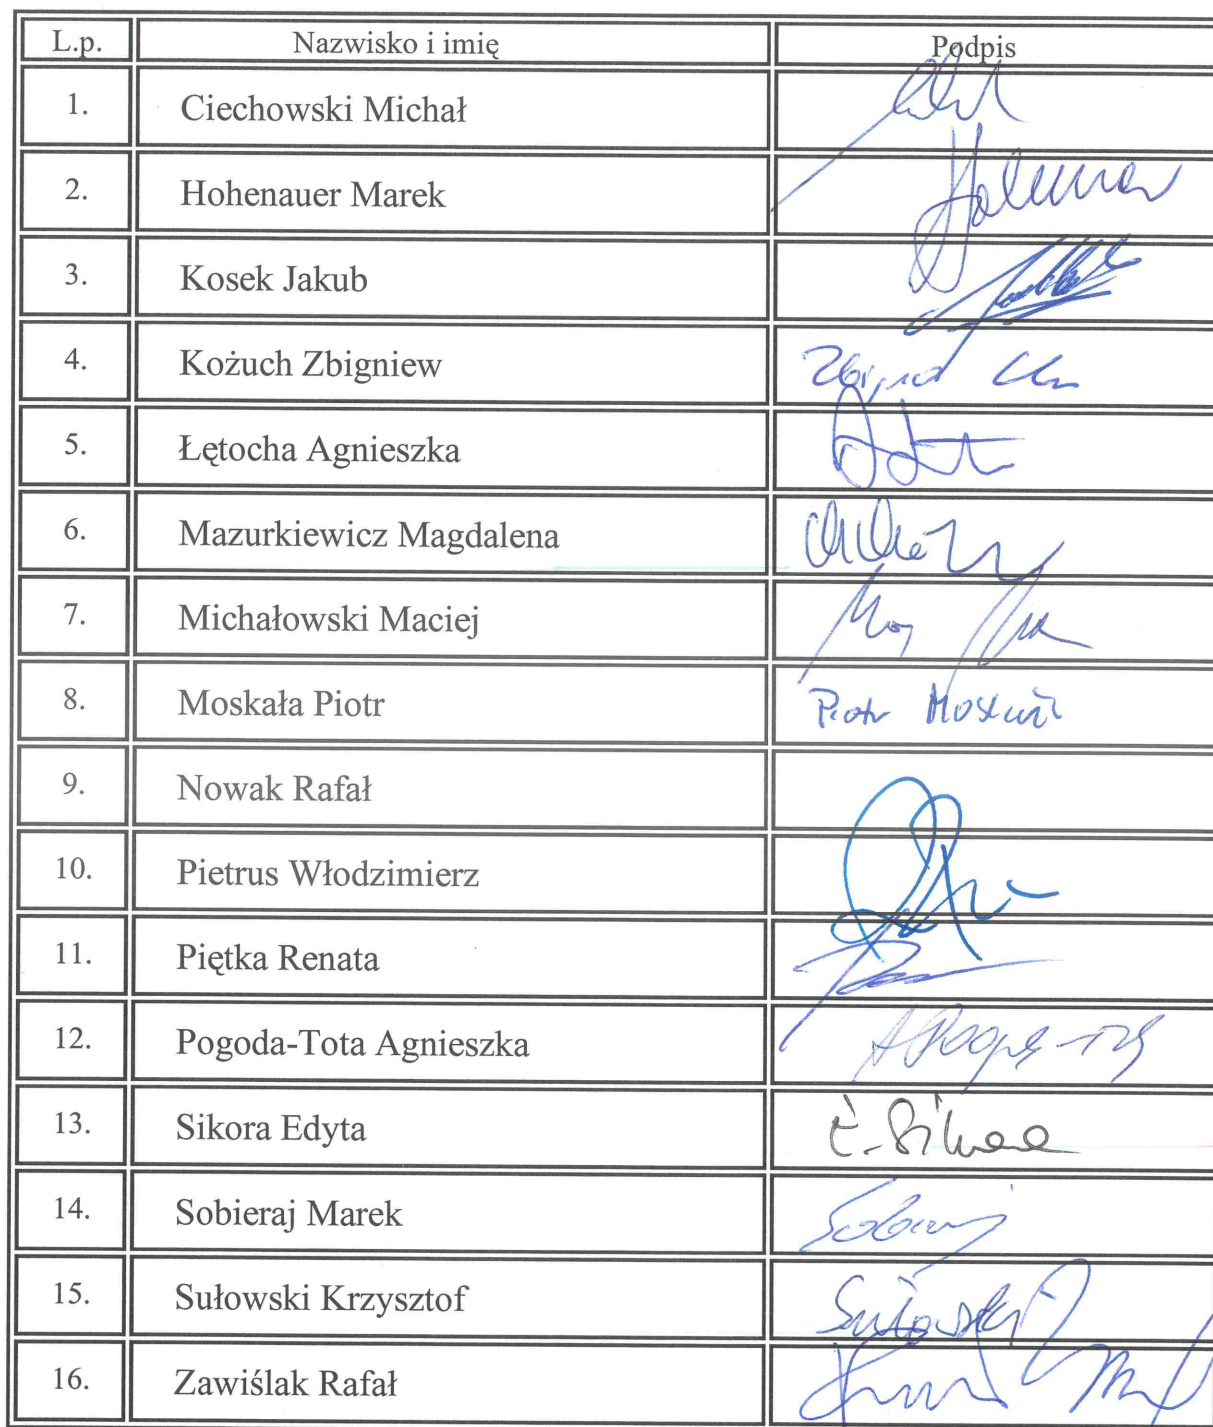 L.p. Nazwisko i imię Podpis
1. Ciechowski Michał
2. Hohenauer Marek
3. Kosek Jakub
4. Kożuch Zbigniew
5. Łętocha Agnieszka
6. Mazurkiewicz Magdalena
7. Michałowski Maciej
8. Moskała Piotr Piotr
9. Nowak Rafał
10. Pietrus Włodzimierz
11. Piętka Renata
12. Pogoda-Tota Agnieszka
13. Sikora Edyta
14. Sobieraj Marek
15. Sułowski Krzysztof Sułowski
16. Zawiślak Rafał